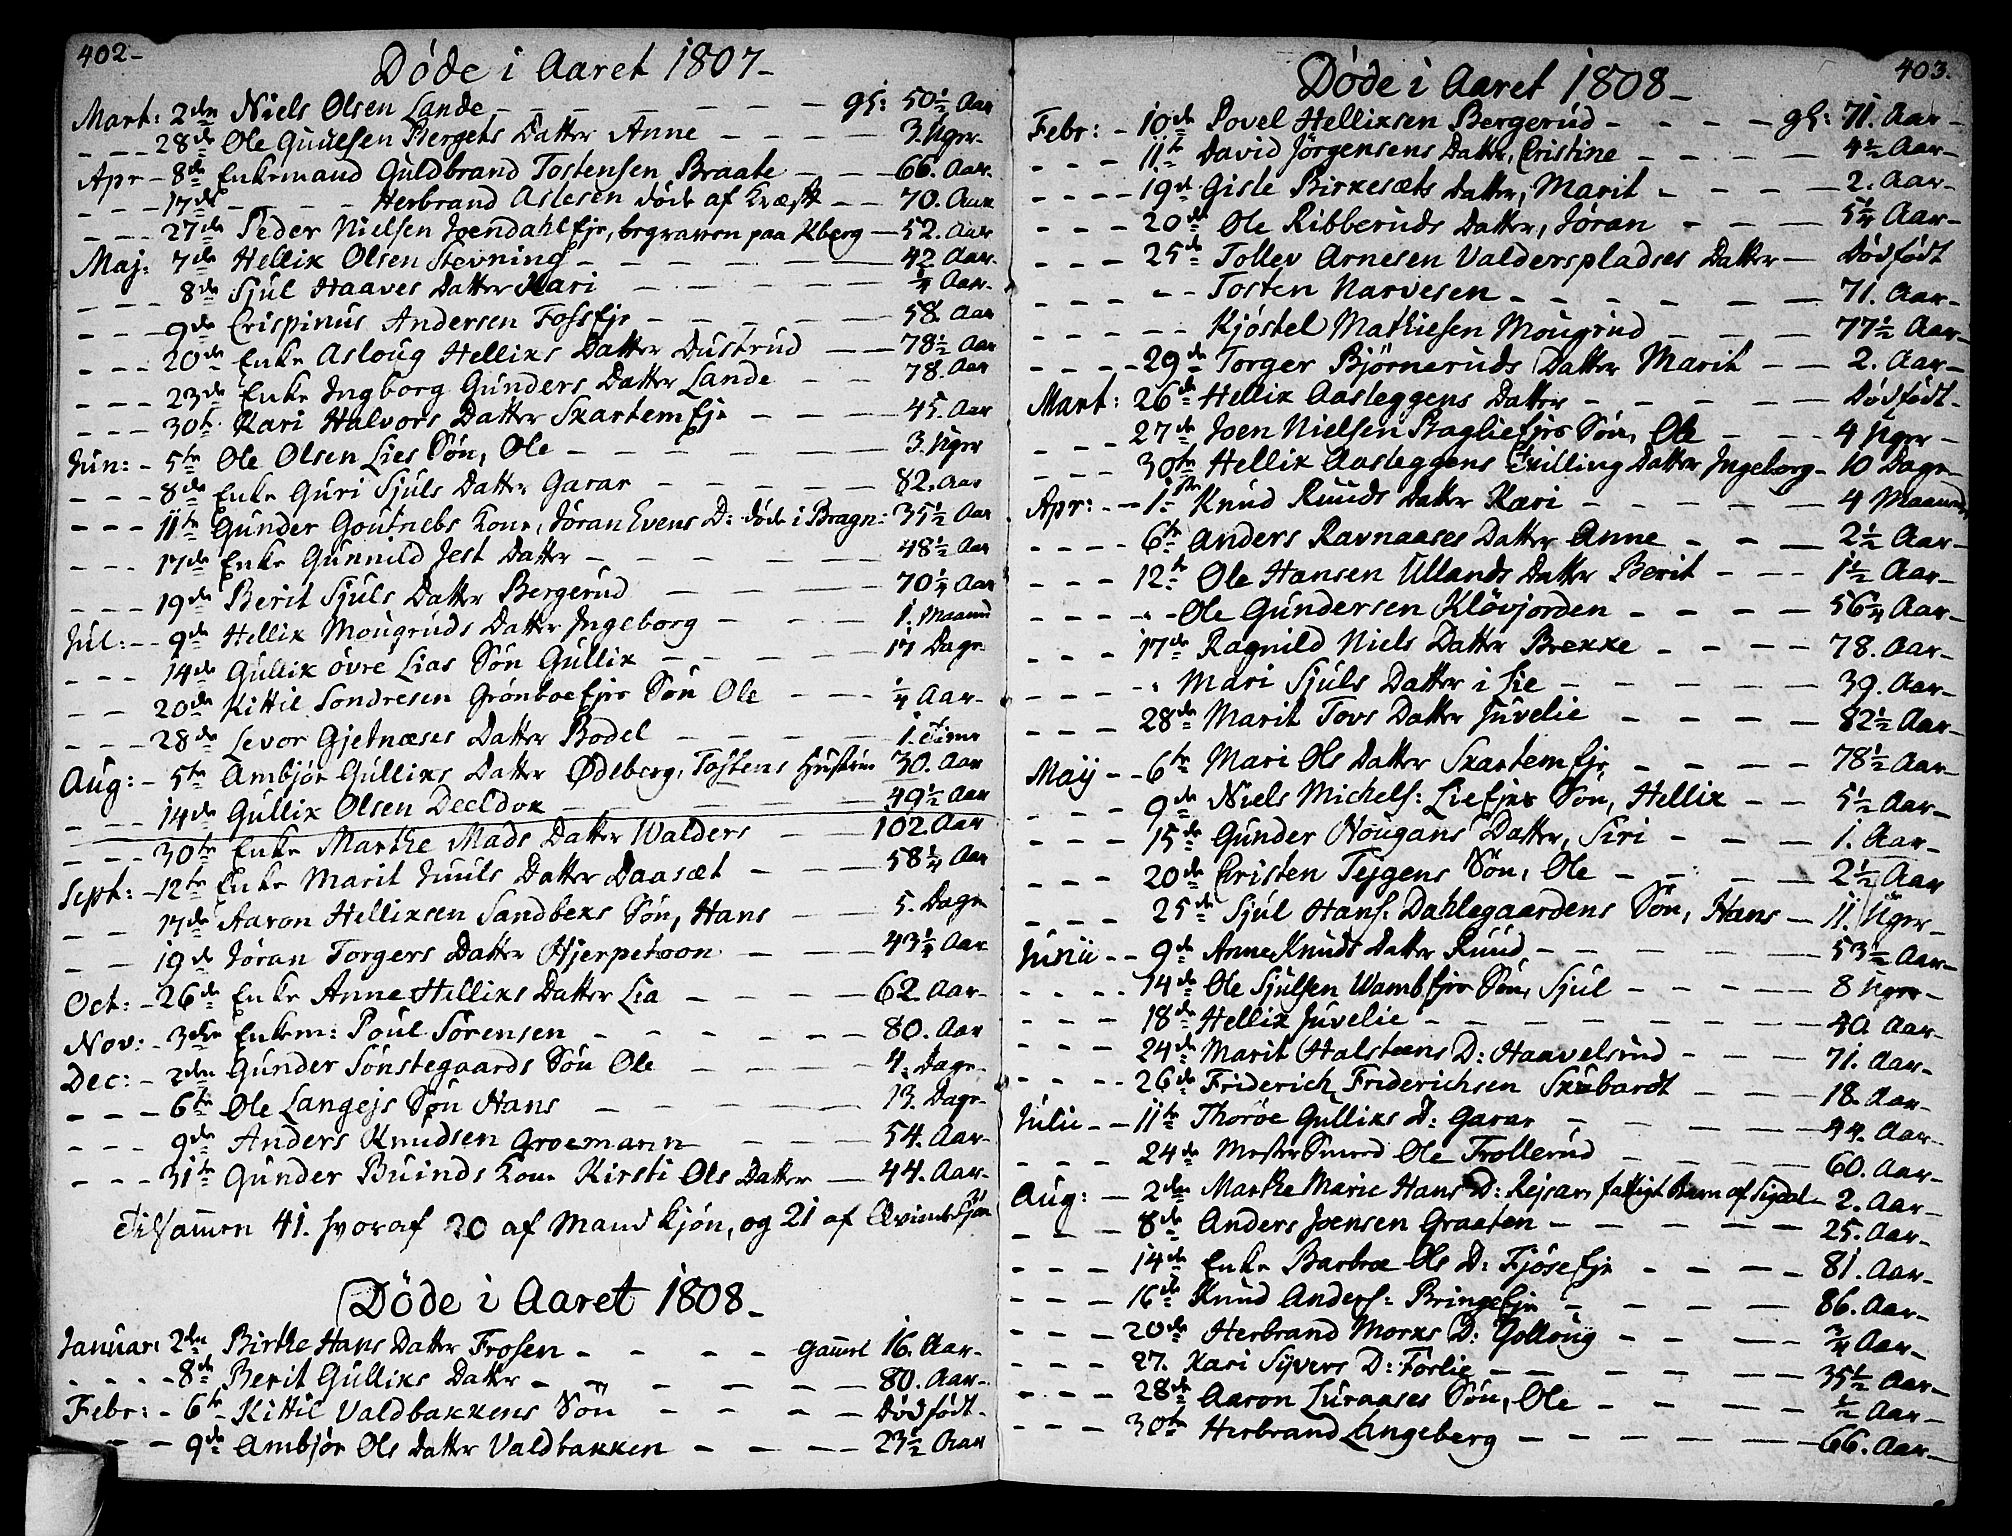 402-
Døde i Aaret 1807-
Mart: 2den Niels Olsen Lande - - - - - gl: 50½ Aar
- - - 28de Ole Guuelsen Bergets Datter Anne - - - 3. Uger-
Apr - 8de Enkemand Guldbrand Tostensen Braate - - - 66. Aar-
- - - 17de - - - Herbrand Aslesen døde af Kræft - - 70. Aar
- - - 27de Peder Nielsen Joendahl Eje, begraven paa Kberg - 52. Aar
Maj: 7de Hellik Olsen Stevning - - - - - 42 Aar-
- - - 8de Sjul Haaves Datter Kari - - - - ¼ Aar-
- - - 9de Crispinus Andersen Foss Eje - - - - 58. Aar
- - - 20de Enke Asloug Helliks Datter Dustrud - - 78½ Aar
- - - 23de Enke Ingborg Gunders Datter Lande - - 78. Aar
- - - 30te Kari Halvors Datter Skartem Eje - - - 45. Aar
Jun: - 5te Ole Olsen Lies Søn, Ole - - - - - 3. Uger
- - - 8de Enke Guri Sjuls Datter Garar - - - - 82. Aar
- - - 11te Gunder Goutriebs Kone, Jøran Evens D: døde i Bragn: 35½ Aar
- - - 17de Enke Gunnild Jest Datter - - - - - 48½ Aar
- - - 19de Berit Sjuls Datter Bergerud - - - - 70¼ Aar
Jul: - - 9de Hellik Mougruds Datter Ingeborg - - - 1. Maaned
- - - 14de Gullik øvre Lias Søn Gullik - - - - 17 Dage
- - 20de Kittil Sondresen Grønboe Ejes Søn Ole - - - ¼ Aar-
- - - 28de Levor Gjetnæses Datter Bodel - - - - 1. Time
Aug: - 5te Ambjør Gulliks Datter Ødeberg, Tostens Hustrue 30. Aar
- - 14de Gullik Olsen Deeldok - - - - - 49½ Aar
- - - 30te Enke Marthe Mads Datter Walders - - 102. Aar
Sept: - 12te Enke Marit Juuls Datter Daasæt - - - 58¼ Aar
- - 17de Aaron Helliksen Sandbeks Søn, Hans - - 5. Dage
- - 19de Jøran Torgers Datter Hjerpetoon - - - 43¼ Aar
Oct: - 26de Enke Anne Helliks Datter Lia - - - - 62. Aar-
Nov: - 3die Enkem: Poul Sørensen - - - - - 80. Aar
Dec: - 2den Gunder Sønstegaards Søn Ole - - - - 4. Dage-
- - - 6te Ole Langejs Søn Hans - - - - - 13. Dage-
- - - 9de Anders Knudsen Groemann - - - - 54. Aar-
- - - 31te Gunder Buinds Kone Kirsti Ols Datter - - 44. Aar-
Tilsamen 41. hvoraf 20 af Mand Kjøn, og 21 af Qvinde Kjøn
Døde i Aaret 1808-
Januar: 2den Birthe Hans Datter Frosen - - - - gamel 16. Aar-
- - - - 8de Berit Gulliks Datter - - - - - - 80. Aar-
Febr: - 6te Kittil Valdbakkens Søn - - - - - Dødfødt-
- - 9de Ambjør Ols Datter Valdbakken - - - - 23½ Aar
403.
Døde i Aaret 1808-
Febr: - 10de Povel Helliksen Bergerud - - - - - gl: 71. Aar-
- - - 11te David Jörgensens Datter, Cristine - - - - 4½ Aar-
- - - - 19de Gisle Birkesæts Datter, Marit - - - - 2. Aar-
- - - 20de Ole Ribberuds Datter, Jøran - - - - 5¼ Aar-
- - - 25de Tollev Arnesen Valderspladses Datter - Dødfødt
- - - - - - Tosten Narvesen - - - - - - 71. Aar-
- - - - - - Kjøstel Mathiesen Mougrud - - - - 77½ Aar-
- - - - 29de Torger Bjørneruds Datter Marit - - 2. Aar-
Mart: 26de Hellik Aasleggens Datter - - - - - Dødfødt-
- - 27de Joen Nielsen Baglie Ejes Søn, Ole - - - 4 Uger -
- - - 30te Hellik Aasleggens Tvilling Datter Ingeborg- 10 Dage-
Apr: - - 1ste Knud Ruuds Datter Kari - - - - - 4 Maaned
- - - - 6te Anders Ravnaases Datter Anne - - - 2½ Aar-
- - - 12te Ole Hansen Ullands Datter Berit - - - 1½ Aar-
- - - - - - Ole Gundersen Kløvjorden - - - - 56¼ Aar-
- - - 17de Ragnild Niels Datter Brekke - - - - 78. Aar-
- - - - - Mari Sjuls Datter i Lie - - - - - 39. Aar-
- - - 28de Marit Tovs Datter Juvelie - - - - 82½ Aar-
Maij - - 6te Mari Ols Datter Skartem Eje - - - - 78½ Aar-
- - - 9de Niels Michels: Lie Ejes Søn, Hellik - - 5½ Aar-
- - - 15de Gunder Nougans Datter, Siri - - - 1. Aar-
- - - 20de Cristen Tejgens Søn, Ole - - - - - 2½ Aar
- - - 25de Sjul Hans: Dahlegaardens Søn, Hans - 11. Uger-
Junii - - 9de Anne Knuds Datter Ruud - - - - - 53½ Aar-
- - - - 14de Ole Sjulsen Wamb Ejes Søn, Sjul - - - - 8 Uger-
- - - 18de Hellik Juvelie - - - - - - - - 40 Aar-
- - - 24de Marit Halsteens D: Haavelsrud - - - 71. Aar-
- - - - 26de Friderich Friderichsen Skubardt - - - 18. Aar-
Julii - - 11te Thorøe Gulliks D: Garar - - - - - 44. Aar-
- - - 24de Mester Smed Ole Trollerud - - - - 60. Aar-
Aug: - 2den Marthe Marie Hans D: Rejsar, fattigt Barn af Sigdal- 2. Aar-
- - - 8de Anders Joensen Graaten - - - - - 25. Aar-
- - - 14de Enke Barbroe Ols D: Fjøse Eje - - - - 81. Aar-
- - - 16de Knud Anders: Bringe Eje - - - - 86. Aar-
- - - - 20de Herbrand Morks D: Gollouig - - - - ¾ Aar-
- - - - 27. Kari Syvers D: Førlie - - - - - 35½ Aar-
- - - - 28de Aaron Luraases Søn, Ole - - - - ½ Aar-
- - - - 30te Herbrand Langeberg - - - - - - 66. Aar-